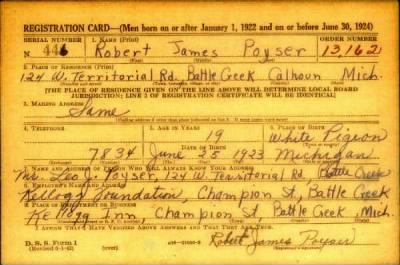 REGISTRATION CARD—(Men born on or after January 1, 1922 and on or before June 30, 1924)
SERIAL NUMBER 1. NAME (Print) ORDER NUMBER
N 446 Robert James Poyser 13,162
(First) (Middle) (Last)
2. PLACE OF RESIDENCE (Print)
124 W. Territorial Rd. Battle Creek Calhoun Mich.
[THE PLACE OF RESIDENCE GIVEN ON THE LINE ABOVE WILL DETERMINE LOCAL BOARD
JURISDICTION; LINE 2 OF REGISTRATION CERTIFICATE WILL BE IDENTICAL]
3. MAILING ADDRESS
Same
4. TELEPHONE 5. AGE IN YEARS 6. PLACE OF BIRTH
19 White Pigeon
DATE OF BIRTH
7834 June 25 1923 Michigan
7. NAME AND ADDRESS OF PERSON WHO WILL ALWAYS KNOW YOUR ADDRESS
Mr. Leo J. Poyser, 124 W. Territorial Rd. Battle Creek
8. EMPLOYER'S NAME AND ADDRESS
Kellogg Foundation, Champion St, Battle Creek
9. PLACE OF EMPLOYMENT OR BUSINESS
Kellogg Inn, Champion St, Battle Creek, Mich.
I AFFIRM THAT I HAVE VERIFIED ABOVE ANSWERS AND THAT THEY ARE TRUE.
D. S. S. Form 1 (over) Robert James Poyser